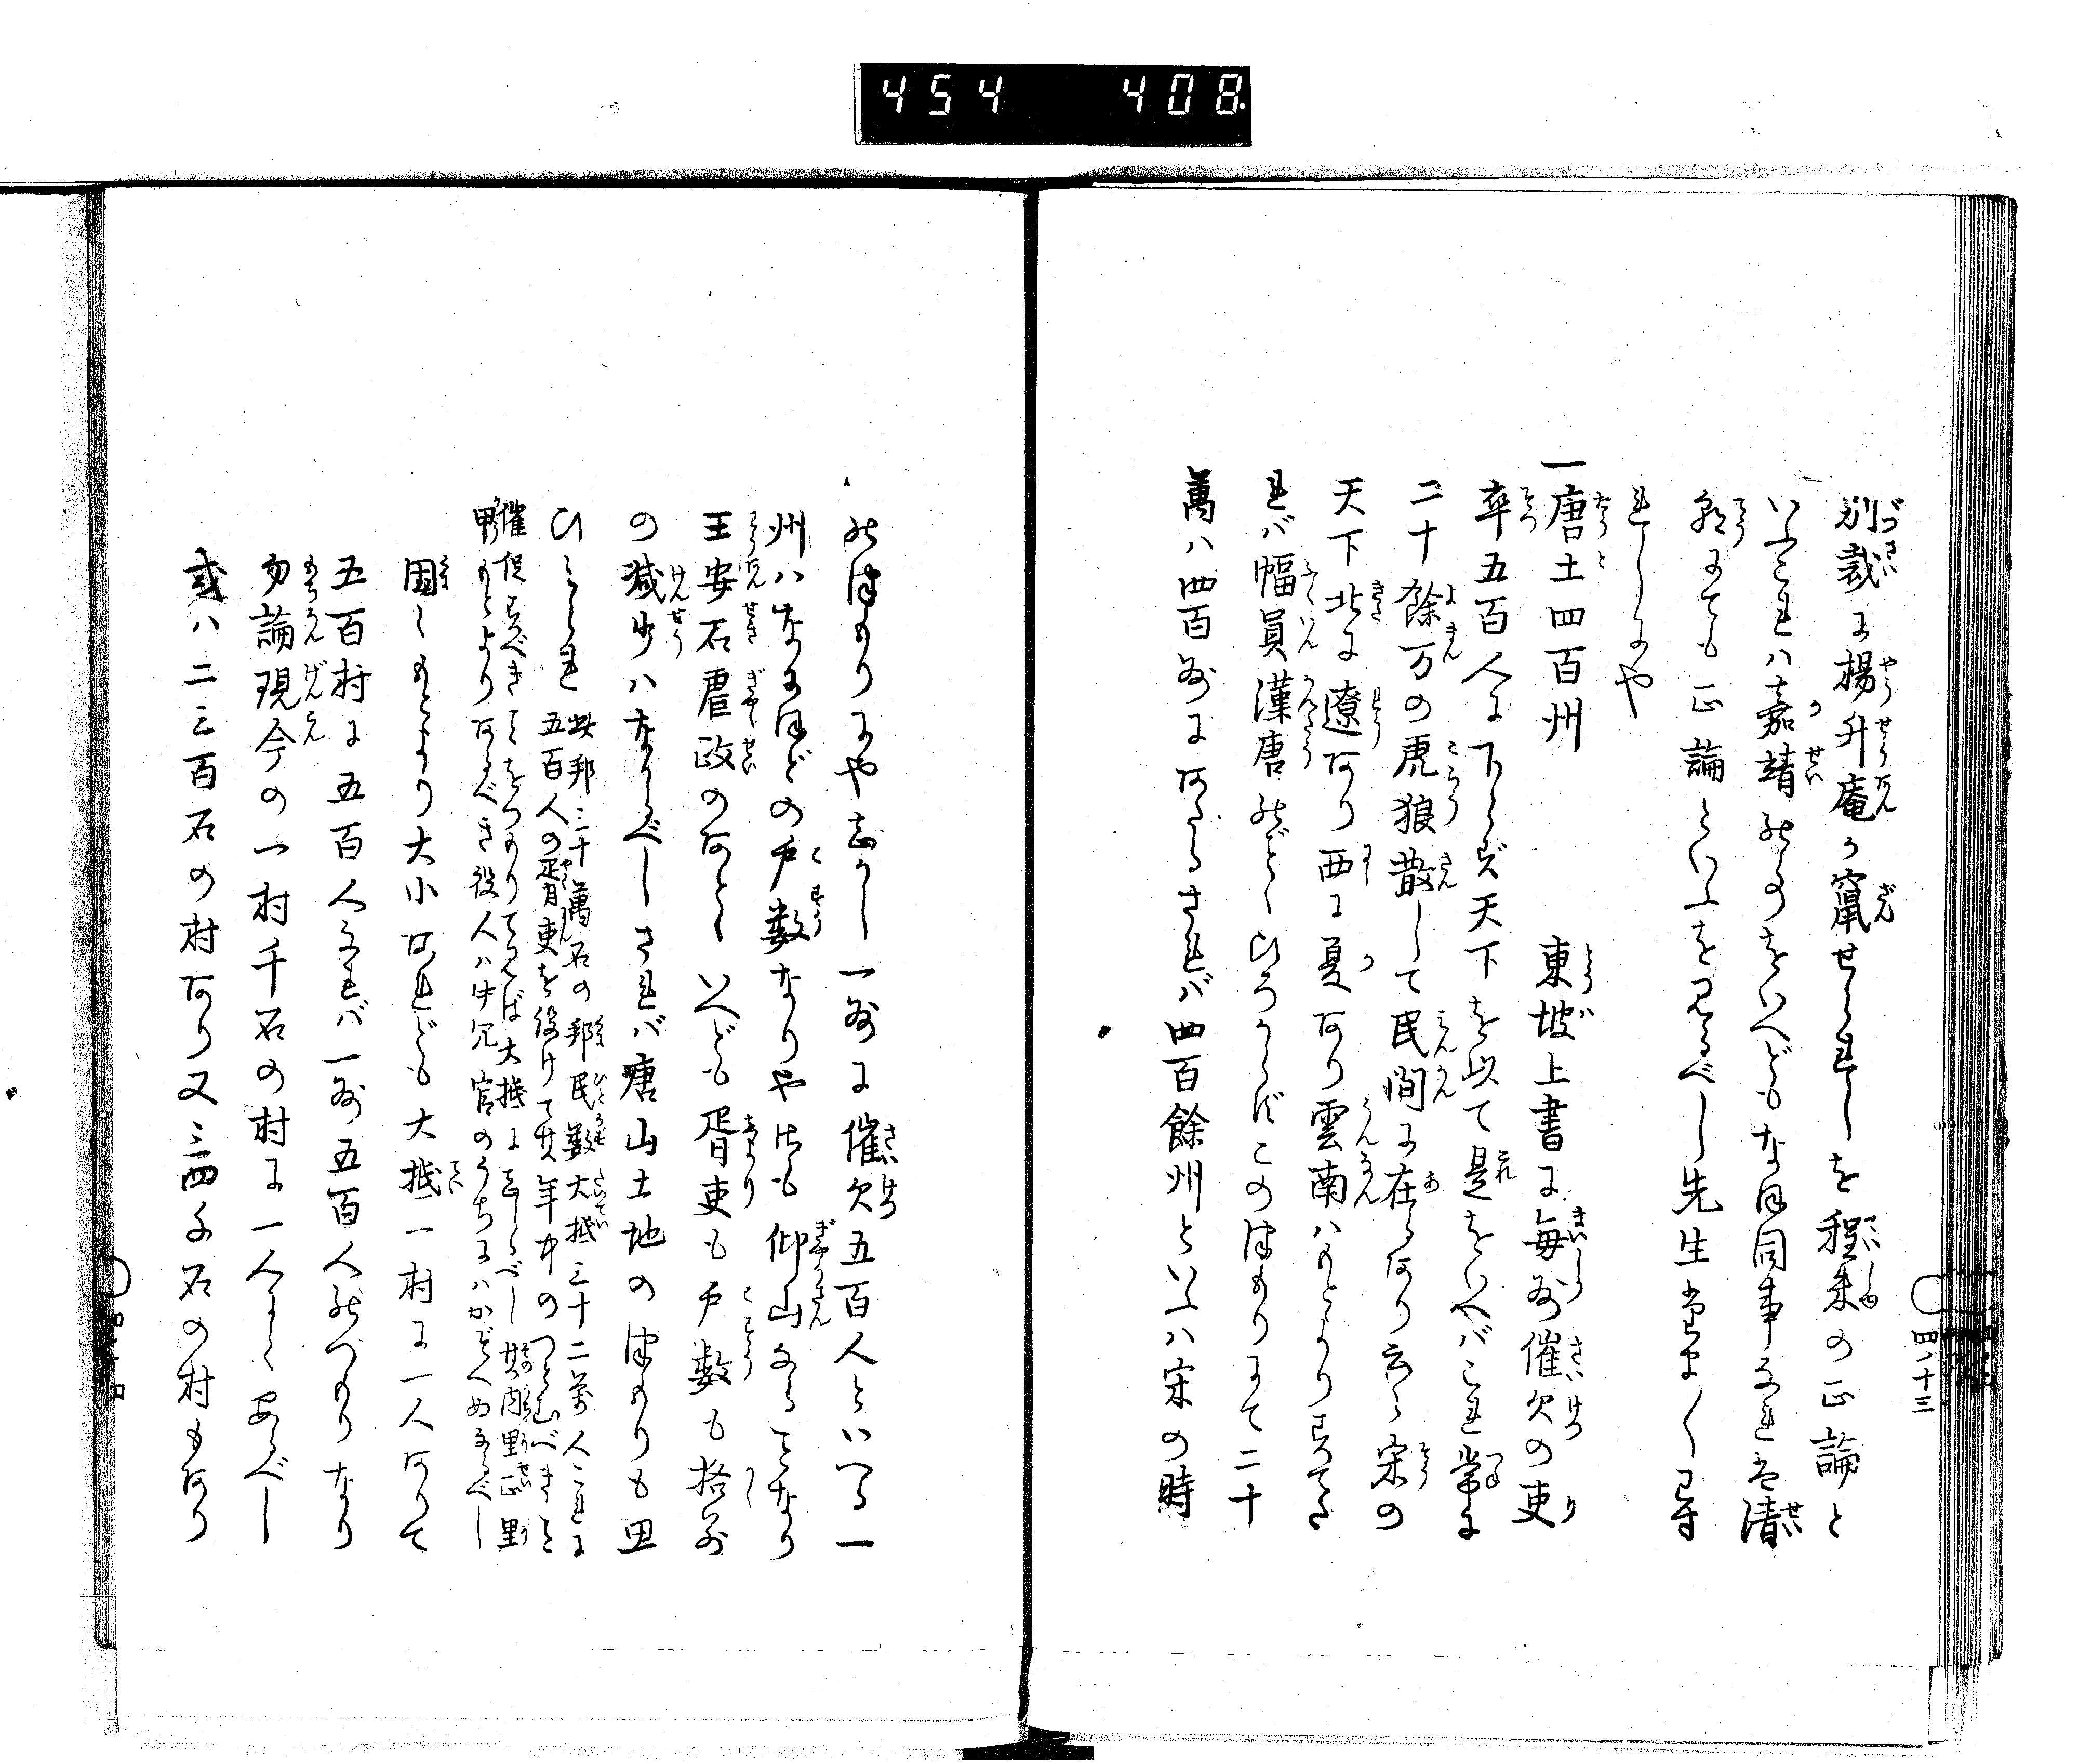 454 408
別裁に楊升庵が竄せられしを程朱の正論と
いふこれハ嘉靖のものをいへどもなほ同事なれど清
朝にても正論といふを見るべし先生當よく尋
れしにや
一唐土四百州 東坡上書に毎州催欠の吏
卒五百人に下らず天下を以て是をいへバこれ常に
二十餘万の虎狼散して民間に在るなり云々宋の
天下北に遼あり西に夏あり雲南ハもとよりすてた
れバ幅員漢唐のごとくひろからずこのつもりにて二十
萬ハ四百州にあたるされバ四百餘州といふハ宋の時
のつもりにや志かし一州に催欠五百人といへる一
州ハなにほどの戸数なりやはも仰山なることなり
王安石虐政のあとといへども胥吏も戸數も格別
の減少ハなかるべしされバ唐山土地のつもりも思
ひしられ 此邦三十萬石の邦民數大抵三十二萬人これに
五百人の胥吏を役けて其年中のつとむべきこと
催促すべきことをつもりてみれば大抵にしるべし其内里正里
甲もとよりあるべき役人ハ此冗官のうちにハかぞへぬなるべし
國々もとより大小あれども大抵一村に一人ありて
五百村に五百人なれバ一州五百人のつもりなり
勿論現今の一村千石の村に一人よく安るべし
或ハ二三百石の村あり又三四千石の村もあり
四ノ十三